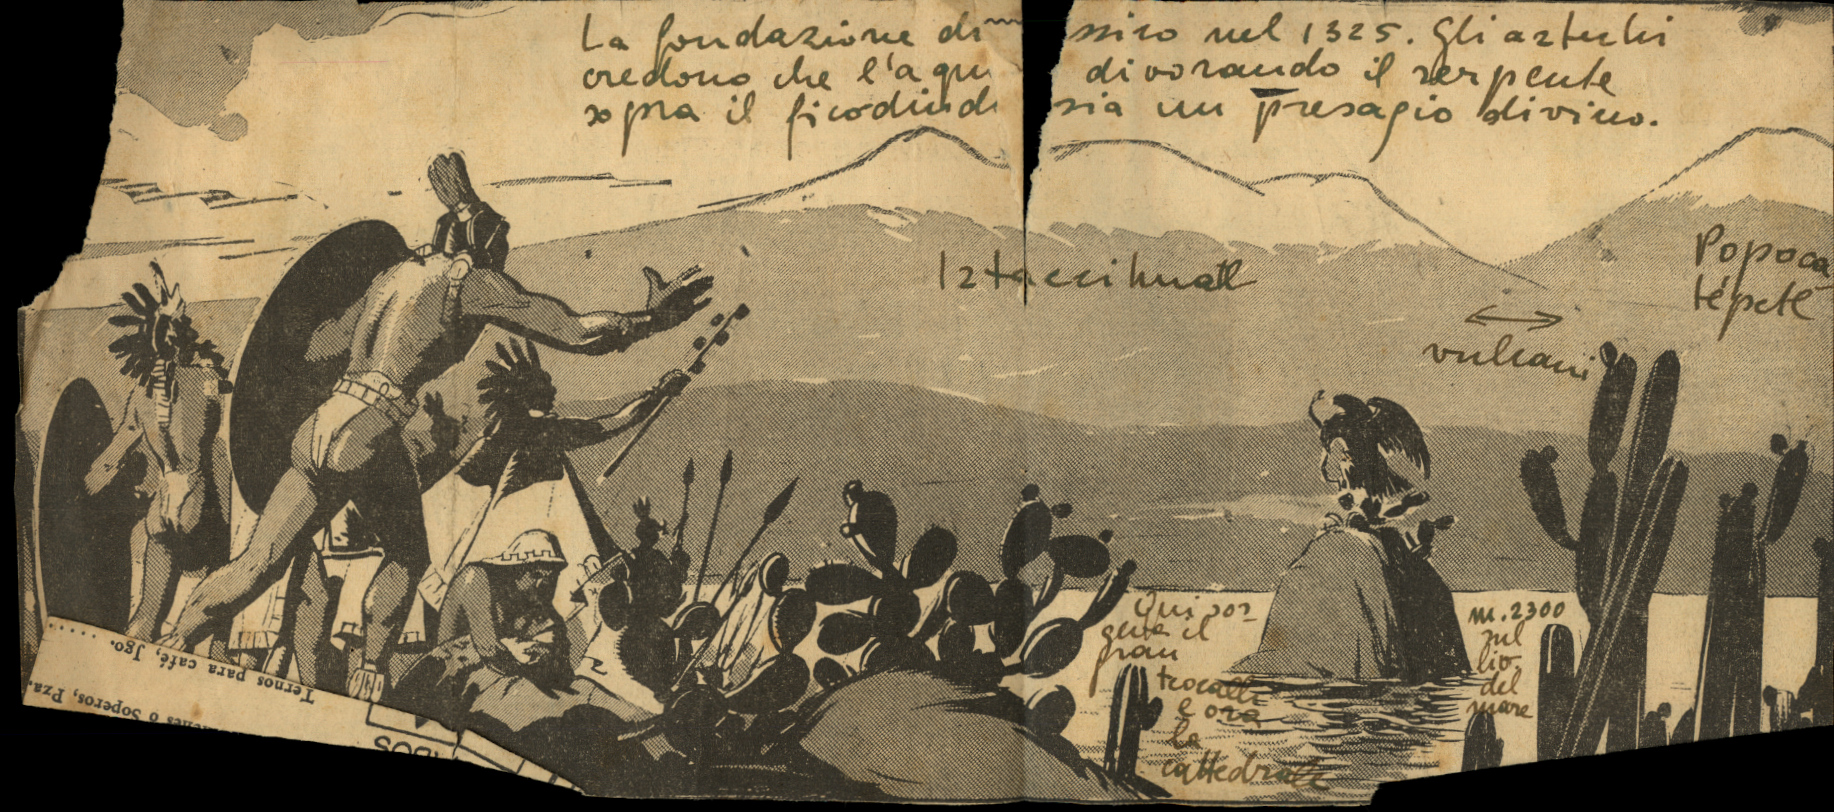 La fondazione di ssico nel 1325. Gli aztechi
credono che l'aqu divorando il serpente
sopra il ficodindi sia un presagio divino.
Iztaccihuatl
Popoca-
tépetl
vulcani
Qui sor-
geva il
gran
teocalli
e ora
la
cattedrale
m. 2300
sul
liv.
del
mare
Ternos para café, Jgo.
ó Soperos, Pza.